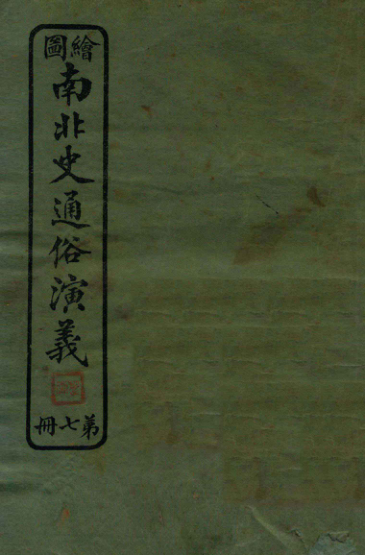 繪圖
南北史通俗演義
第七冊